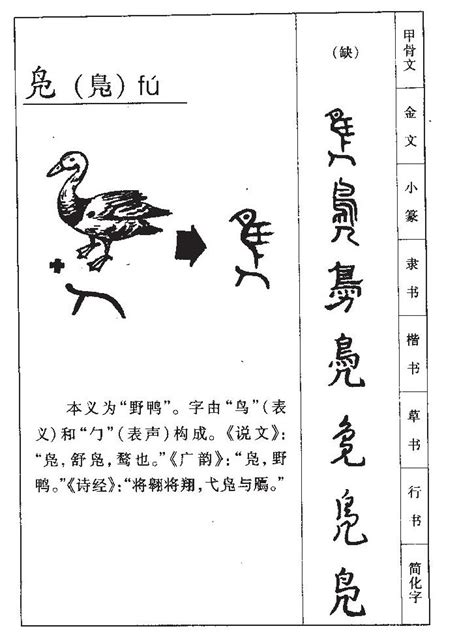 凫（鳧）fú
本义为“野鸭”。字由“鸟”（表
义）和“勹”（表声）构成。《说文》：
“凫，舒凫，鹜也。”《广韵》：“凫，野
鸭。”《诗经》：“将翱将翔，弋凫与鴈。”
（缺）
甲骨文
金文
小篆
隶书
鳧
楷书
草书
行书
凫
简化字